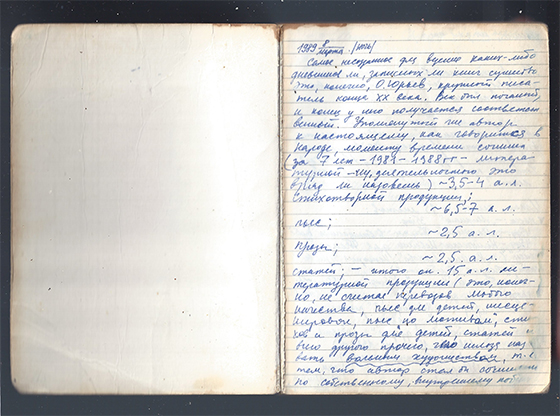 1989 8 марта /ночь/
Самое несчастное для ведения каких-либо
дневников ли, записных ли книг существо
это, конечно, О. Юрьев, крупный писа-
тель конца XX века.
и конец у него получается соответст-
венный. Упомянутый же автор
к настоящему, как говорится в
народе, моменту времени сочинил
(за 7 лет – 1981 – 1988 гг – литера-
турной деятельностью это
вряд ли назовешь) ~ 3,5-4 а.л.
стихотворной продукции;
~ 6,5-7 а.л.
пьес;
~ 2,5 а.л.
прозы;
~ 2,5 а.л.
статей; – итого ок. 15 а.л. ли-
тературной продукции (это, конеч-
но, не считая переводов любого
качества, пьес для детей, инсце-
нировок, пьес по мотивам, сти-
хов и прозы для детей, статей и
всего другого прочего, что нельзя наз-
вать вольным художеством, т.е.
тем, что автор стал бы сочинять
по собственному, внутреннему